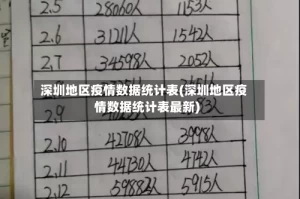 2.5 28060人 1153人
2.6 31211人 1542人
2.7 34598人 2052人
深圳地区疫情数据统计表(深圳地区疫
情数据统计表最新)
2.10 42708人 3998人
2.11 44730人 4742人
2.12 59882人 5915人